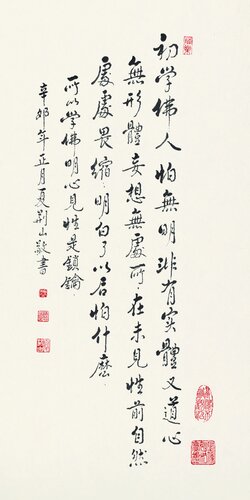 初学佛人怕無明非有实體又道心
無形體妄想無處所在未見性前自然
處處畏縮明白了以后怕什麽
所以学佛明心見性是鎖鑰
辛卯年正月夏荆山敬書